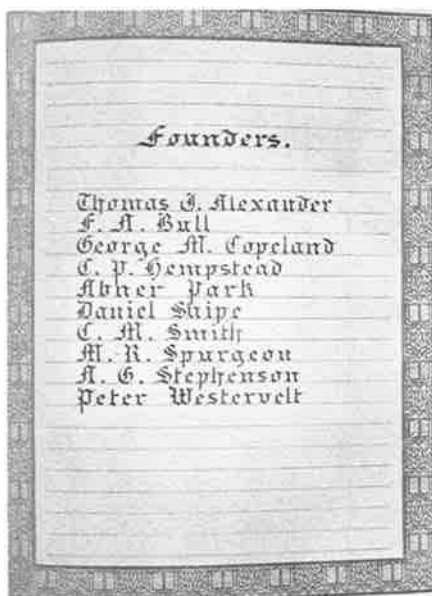 Founders.
Thomas J. Alexander
F. A. Bull
George M. Copeland
C. P. Hempstead
Abner Park
Daniel Snipe
C. M. Smith
M. R. Spurgeon
A. G. Stephenson
Peter Westervelt